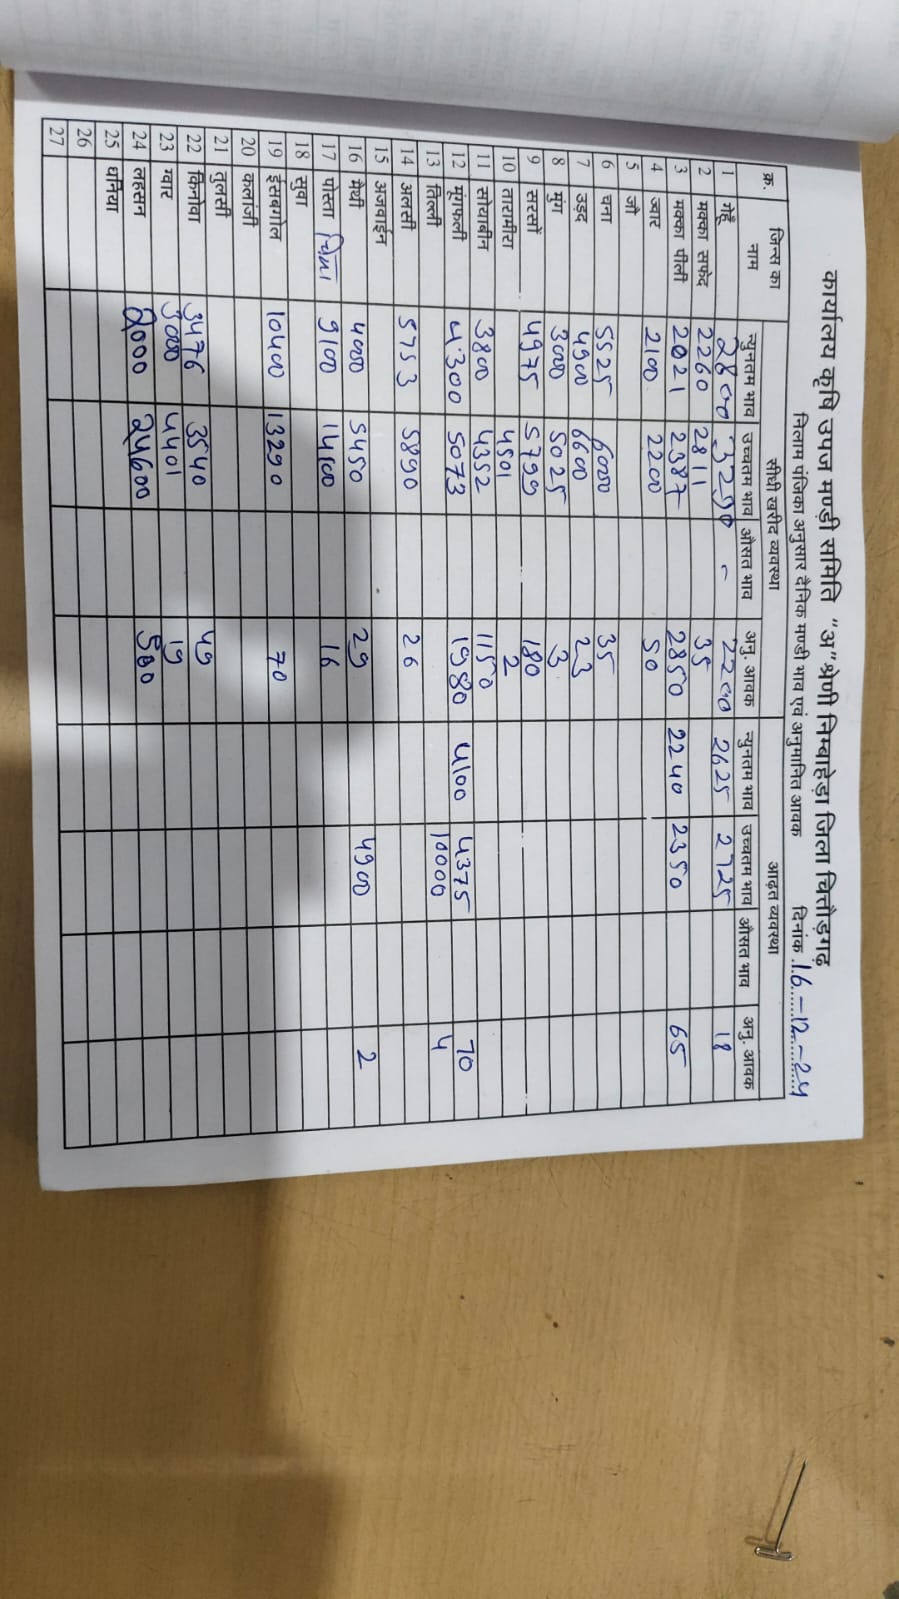 कार्यालय कृषि उपज मण्डी समिति "अ" श्रेणी निम्बाहेड़ा जिला चित्तौड़गढ़
निलाम पंजिका अनुसार दैनिक मण्डी भाव एवं अनुमानित आवक दिनांक 16-12-24
क्र. जिन्स का नाम सीधी खरीद व्यवस्था आढ़त व्यवस्था
न्युनतम भाव उच्चतम भाव औसत भाव अनु. आवक न्युनतम भाव उच्चतम भाव औसत भाव अनु. आवक
1 गेहूँ 2800 - 2200 2625 2725 18
2 मक्का सफेद 2260 2811 35
3 मक्का पीली 2021 2387 2850 2240 2350 65
4 ज्वार 2100 2200 50
5 जौ
6 चना 5525 6000 35
7 उड़द 4900 6600 23
8 मुंग 3000 5025 3
9 सरसों 4975 5799 180
10 तारामीरा 4501 2
11 सोयाबीन 3800 4352 1150
12 मूंगफली 4300 5073 1980 4100 4375 70
13 तिल्ली 10000 4
14 अलसी 5753 5890 26
15 अजवाईन
16 मैथी 4000 5450 29 4900 2
17 पोस्ता 9100 14100 16
18 सुवा
19 ईसबगोल 10400 13290 70
20 कलांजी
21 तुलसी
22 किनोवा 3476 3540 49
23 ग्वार 3000 4401 19
24 लहसन 24600 500
25 धनिया
26
27